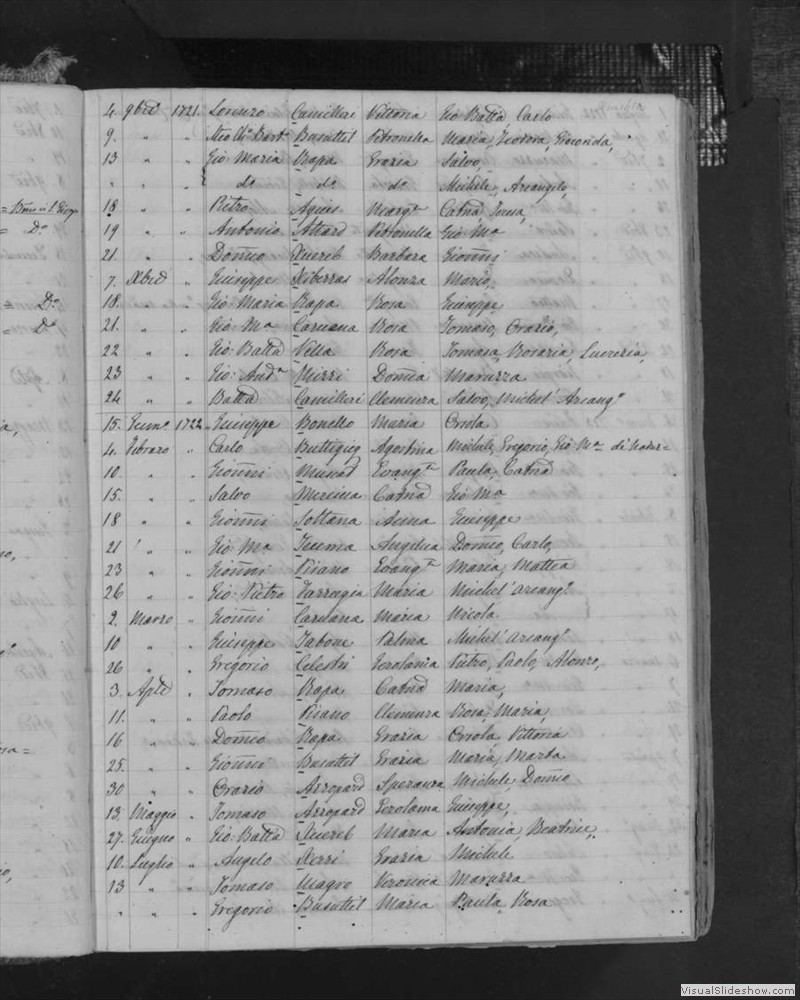 4. 9bre 1721 Lorenzo Camilleri Vittoria Gio Batta, Carlo
9. " " Busuttil Petronella Maria, Teodora, Gioconda,
13 " " Gio: Maria Rapa Grazia Salvo,
" " " do do do Michele, Arcangelo,
18 " " Pietro Agius Margta Catna
19 " " Antonio Attard Petronella Gio Ma
21. " " Domco Xuereb Barbora Gionni
7. Xbre " Giuseppe Xiberras Alonza Mario,
18. " " Gio: Maria Rapa Rosa Giuseppe
21. " " Gio: Ma Caruana Rosa Tomaso, Orazio,
22 " " Gio: Batta Vella Rosa Tomasa, Rosaria, Lucrezia,
23 " " Gio: Anda Mizzi Domca Maruzza
24 " " Batta Camilleri Clemenza Salvo, Michel' Arcango
15. 1722 Giuseppe Bonello Maria Oriola
4. Febraro " Carlo Buttigieg Agostina Michele, Gregorio, Gio Ma
10. " " Gionni Muscat Evangta Paula, Catna
15. " " Salvo Mercieca Catna Gio Ma
18 " " Gionni Soltana Anna Giuseppe
21 " " Gio: Ma Teuma Angelica Domco, Carlo,
23 " " Gionni Pisano Evangta Maria, Mattea
26 " " Gio: Pietro Farrugia Maria Michel' Arcango
2. Marzo " Gionni Caruana Maria Nicola
10 " " Giuseppe Tabone Palma Michel' Arcango
26 " " Gregorio Celestri Gerolama Pietro, Paolo, Alonzo,
3. Aple " Tomaso Rapa Catna Maria,
11. " " Paolo Pisano Clemenza Rosa, Maria,
16 " " Domco Rapa Grazia Oriola, Vittoria
25. " " Gionni Busuttil Grazia Maria, Marta
30 " " Orazio Azzopard Speranza Michele, Domco
13. Maggio " Tomaso Azzopard Gerolama Giuseppe,
27. Giugno " Gio: Batta Xuereb Maria Antonia, Beatrice,
10. Luglio " Angelo Xerri Grazia Michele
13 " " Tomaso Magro Veronica Maruzza
" " " Gregorio Busuttil Maria Paula, Rosa
VisualSlideshow.com